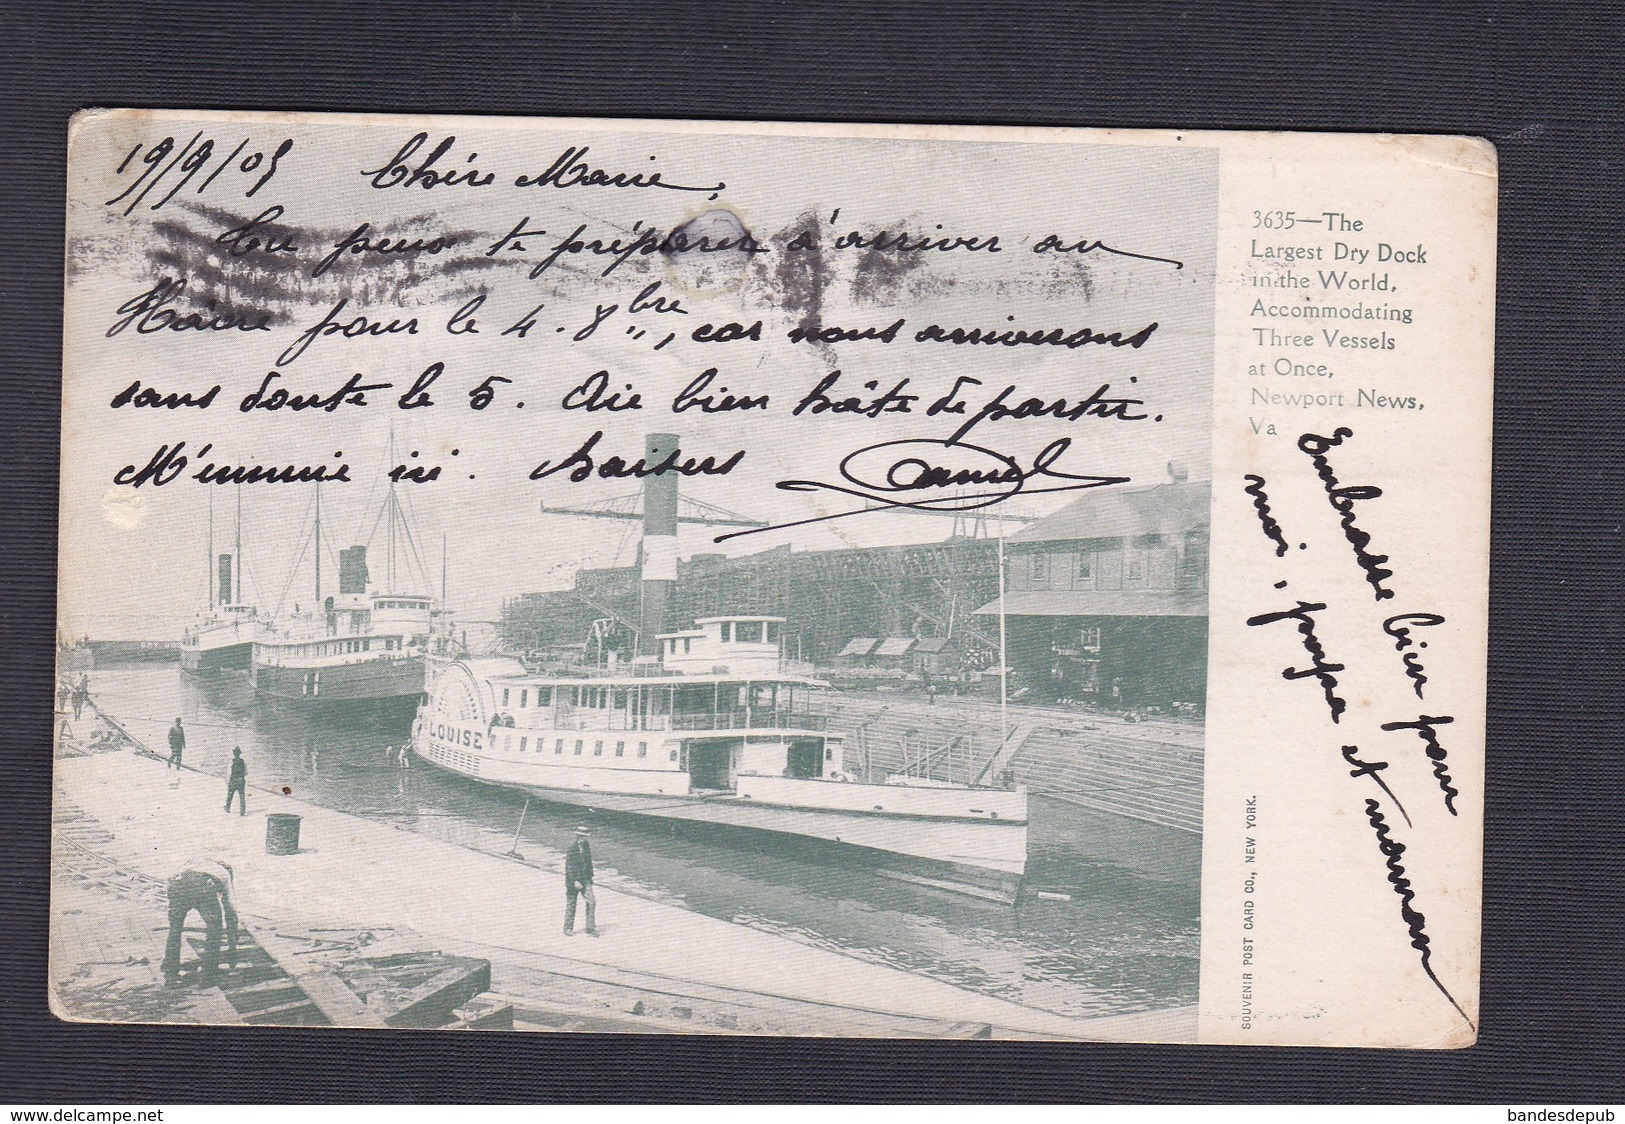 19/9/05 Chère Marie,
Tu peux te préparer à arriver au
Hâvre pour le 4. 8bre, car nous arriverons
sans doute le 5. Aie bien hâte de partir.
M'ennuie ici. Baisers Daniel
3635—The
Largest Dry Dock
in the World,
Accommodating
Three Vessels
at Once,
Newport News,
Va
Embrasse bien pour
moi, papa et maman
LOUISE
SOUVENIR POST CARD CO., NEW YORK.
www.delcampe.net
bandesdepub